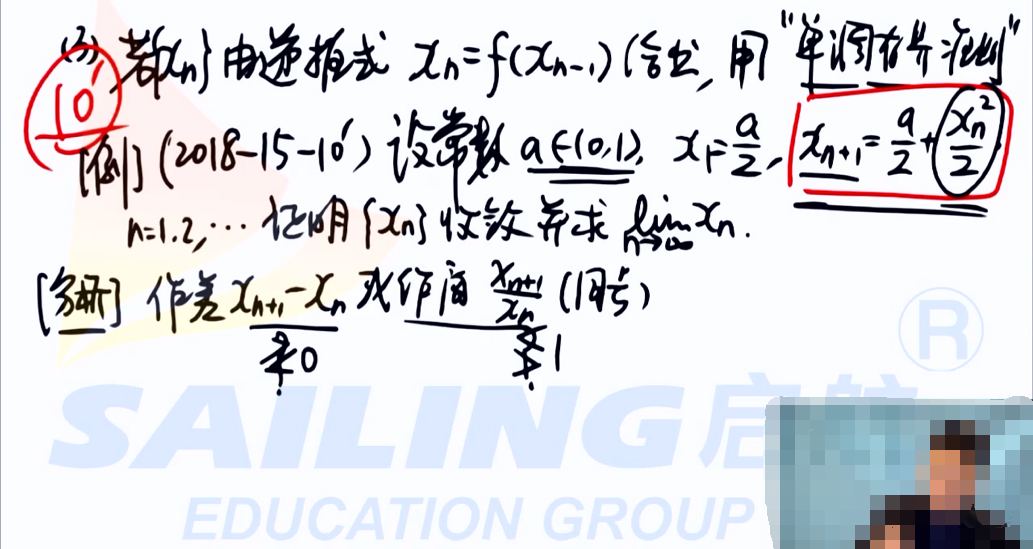 (3) 若{xn}由递推式 xn=f(xn-1)给出, 用"单调有界准则"
10'
[例] (2018-15-10') 设常数 a∈(0,1), x1=a/2, xn+1=a/2+xn²/2
n=1.2,… 证明{xn}收敛并求 lim n→∞ xn.
[分析] 作差 xn+1-xn 或作商 xn+1/xn (同号)
0 1
R
SAILING 启航
EDUCATION GROUP